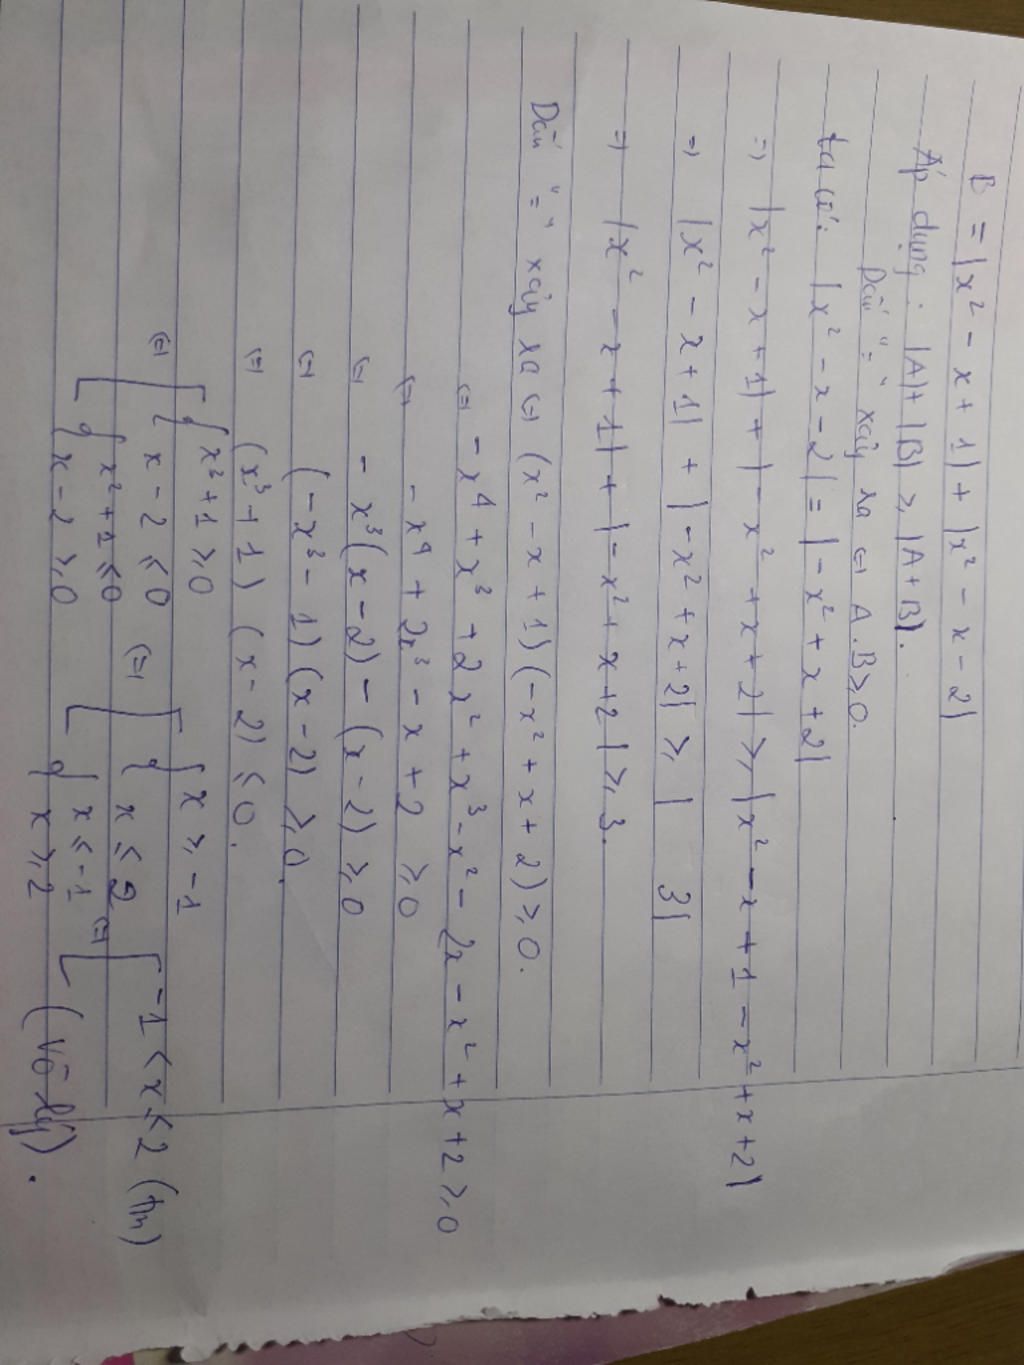 B = |x² - x + 1| + |x² - x - 2|
Áp dụng : |A| + |B| ≥ |A+B|.
Dấu "=" xảy ra ⇔ A.B ≥ 0.
ta có: |x² - x - 2| = |-x² + x + 2|
⇒ |x² - x + 1| + |-x² + x + 2| ≥ |x² - x + 1 - x² + x + 2|
⇒ |x² - x + 1| + |-x² + x + 2| ≥ | 3|
⇒ |x² - x + 1| + |-x² + x + 2| ≥ 3.
Dấu "=" xảy ra ⇔ (x² - x + 1)(-x² + x + 2) ≥ 0.
⇔ -x⁴ + x³ + 2x² + x³ - x² - 2x - x² + x + 2 ≥ 0
⇔ -x⁴ + 2x³ - x + 2 ≥ 0
⇔ -x³(x - 2) - (x - 2) ≥ 0
⇔ (-x³ - 1)(x - 2) ≥ 0.
⇔ (x³ + 1)(x - 2) ≤ 0.
⇔ [ { x³ + 1 ≥ 0 ⇔ [ { x ≥ -1 ⇔ [ -1 < x < 2 (tm)
x - 2 ≤ 0 x ≤ 2
{ x² + 1 ≤ 0 { x ≤ -1 (vô lý).
x - 2 ≥ 0 x ≥ 2